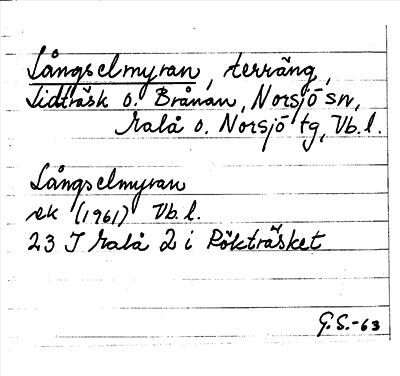 Långselmyran, terräng,
Lidträsk o. Brånan, Norsjö sn,
Malå o. Norsjö tg, Vb. l.
Långselmyran
ek (1961) Vb. l.
23 J Malå 2 i Rökträsket
G. S. -63